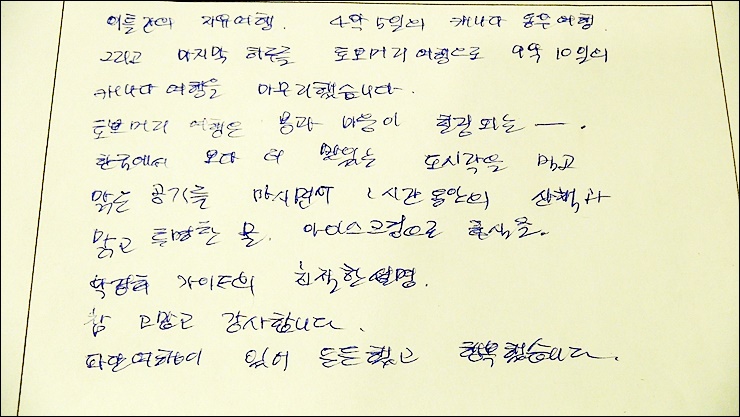 이틀간의 자유여행. 4박 5일의 캐나다 동부여행
그리고 마지막 하루를 토보머리 여행으로 9박 10일의
캐나다 여행을 마무리했습니다.
토보머리 여행은 몸과 마음이 힐링되는 ―.
한국에서 보다 더 맛있는 도시락을 먹고
맑은 공기를 마시면서 1시간 동안의 산책과
맑고 투명한 물. 아이스크림으로 후식을.
가이드의 친절한 설명.
참 고맙고 감사합니다.
파란여행이 있어 든든했고 행복했습니다.